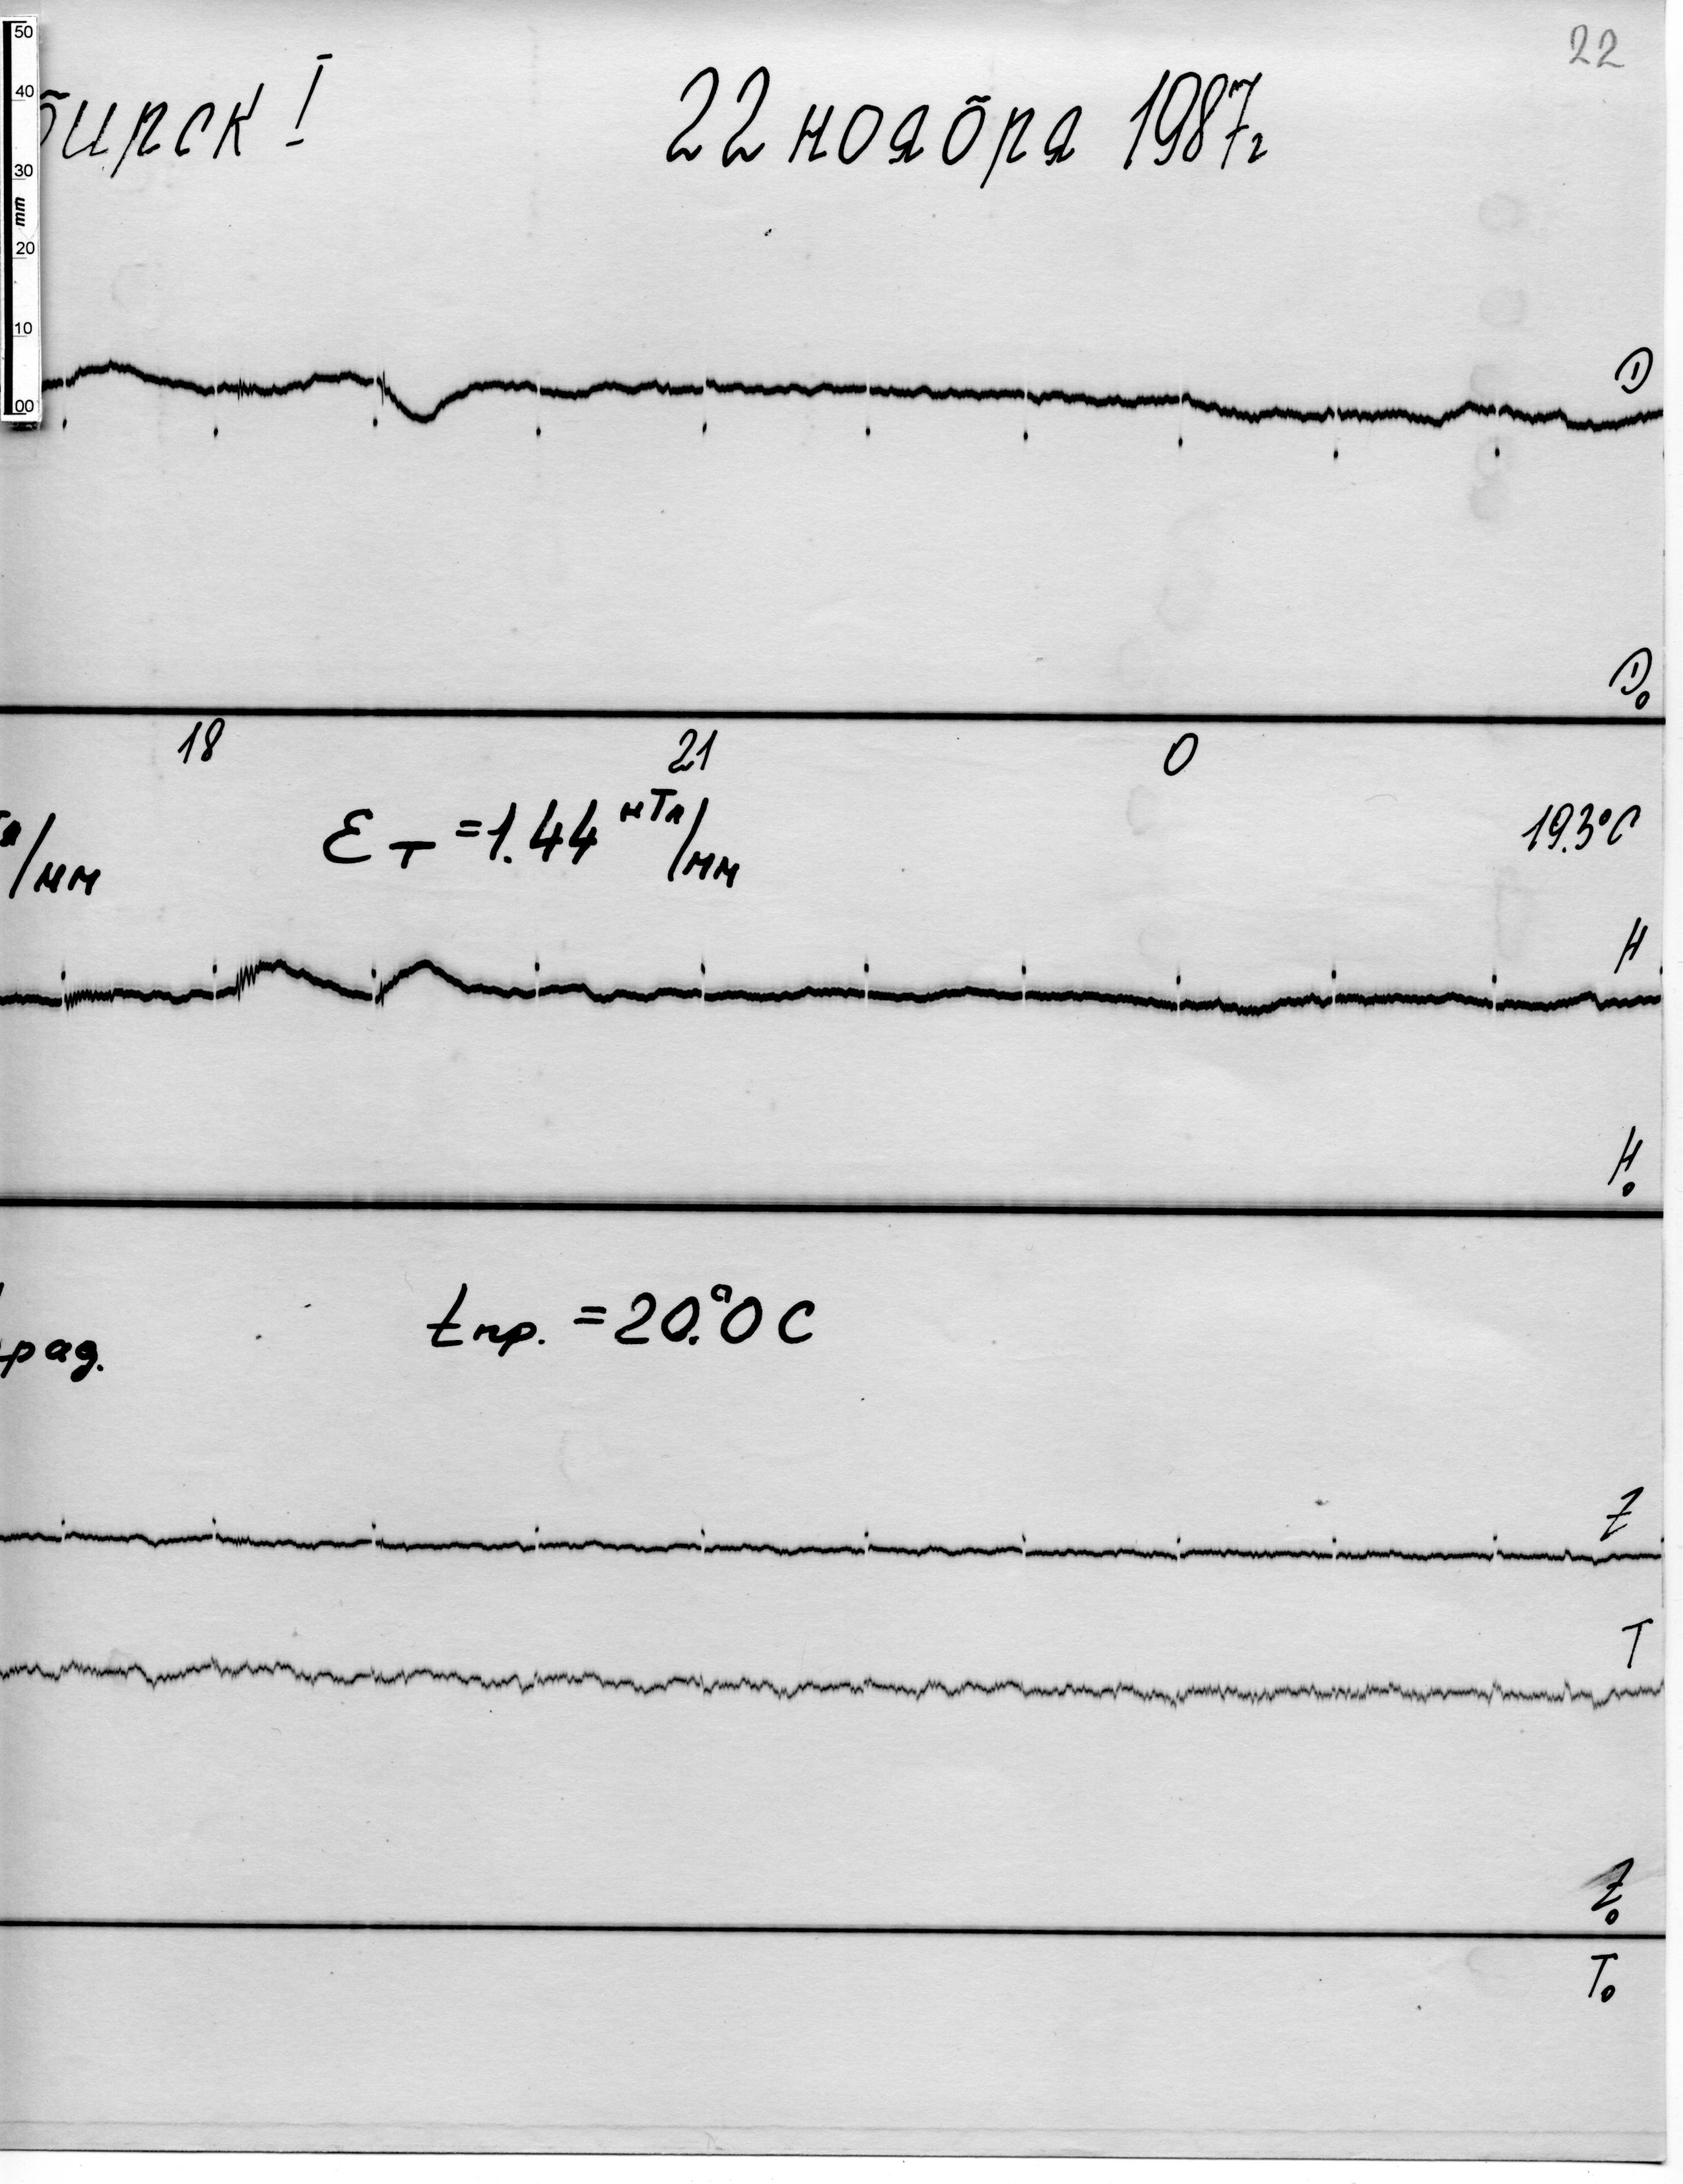 22
50
40
30
mm
20
10
00
бирск I
22 ноября 1987г
D
D₀
18 21 0
/мм
Ɛт = 1.44 нТл/мм
19.3°C
H
H₀
tпр. = 20.°0 C
рад.
Z
T
Z₀
T₀